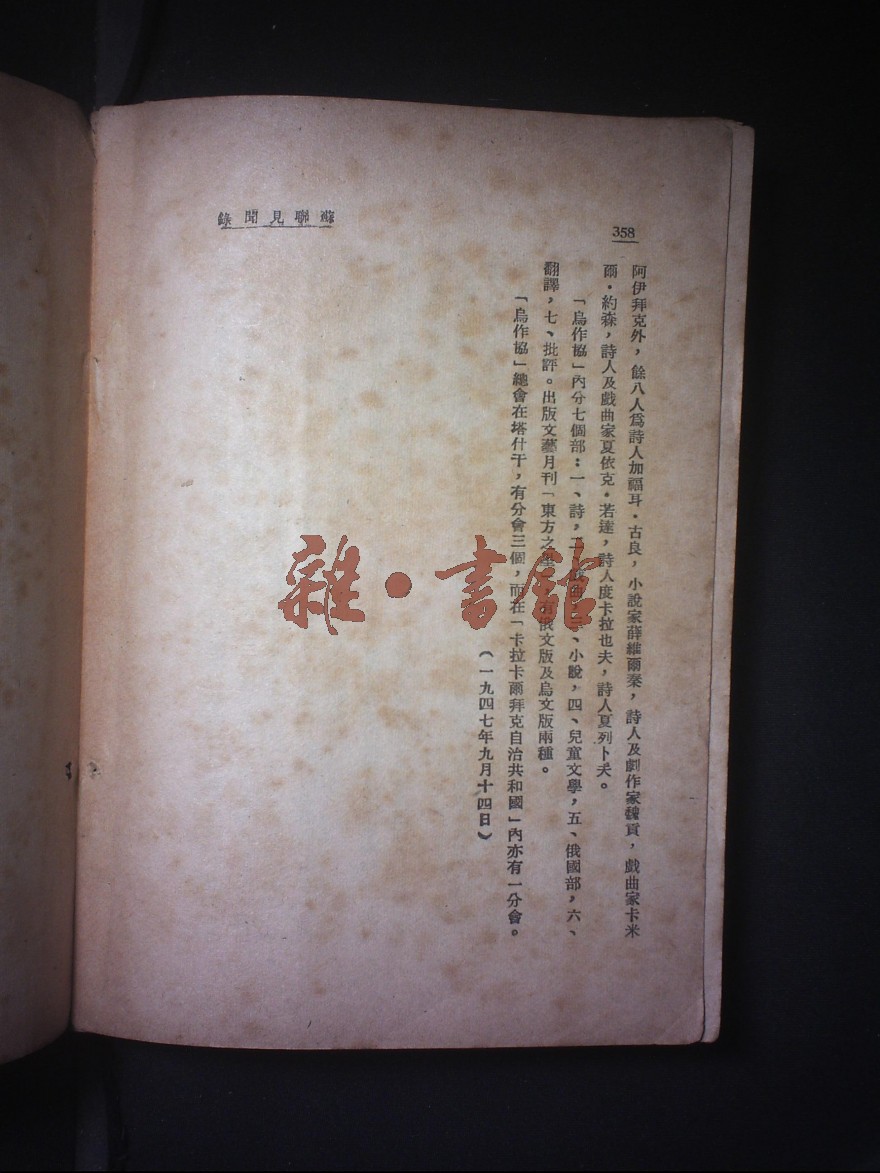 358
蘇聯見聞錄
阿伊拜克外，餘八人爲詩人加福耳·古良，小說家薛維爾秦，詩人及劇作家魏貢，戲曲家卡米
爾·約森，詩人及戲曲家夏依克·若達，詩人度卡拉也夫，詩人夏列卜夭。
「烏作協」內分七個部：一、詩，二、戲曲，三、小說，四、兒童文學，五、俄國部，六、
翻譯，七、批評。出版文藝月刊「東方之星」有俄文版及烏文版兩種。
「烏作協」總會在塔什干，有分會三個，而在「卡拉卡爾拜克自治共和國」內亦有一分會。
（一九四七年九月十四日）
雜·書館